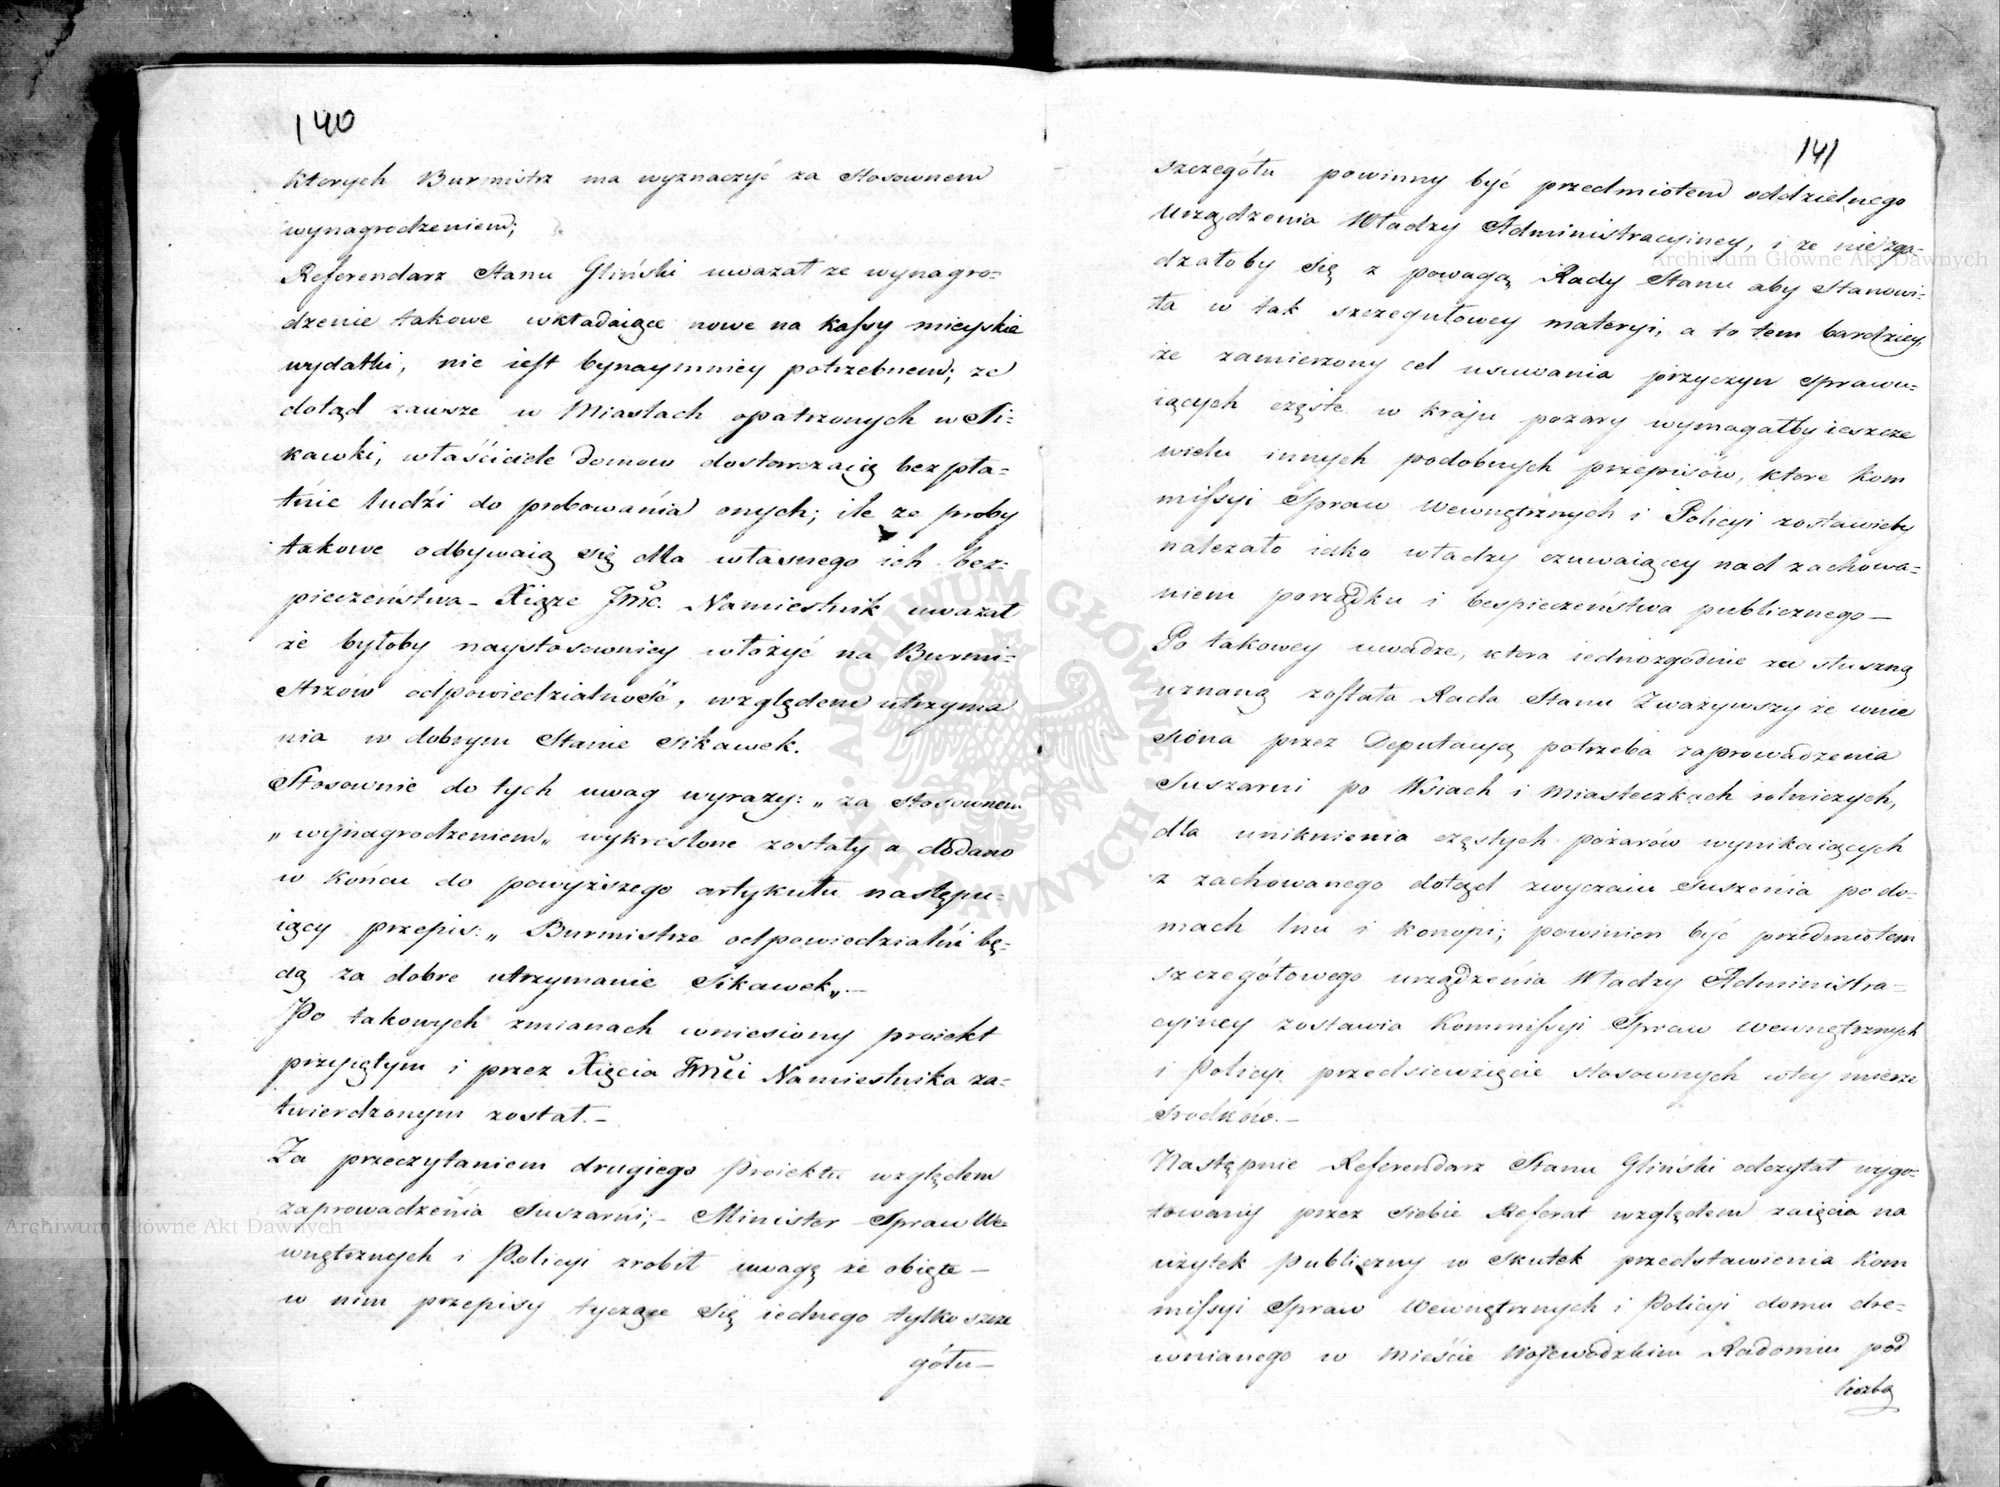 140
których Burmistrz ma wyznaczyć za stosownem
wynagrodzeniem;
Referendarz Stanu Gliński uważał ze wynagro-
dzenie takowe wkładaiące nowe na kassy mieyskie
wydatki, nie iest bynaymniey potrzebnem; ze
dotąd zawsze w Miastach opatrzonych w Si-
kawki, właściciele domow dostarczaią bezpła-
tnie ludźi do probowania onych; ile ze proby
takowe odbywaią się dla własnego ich bez-
pieczeństwa – Xiąże Jmć. Namiestnik uważał
że byłoby naystosowniey włożyć na Burmi-
strzów odpowiedzialność, względem utrzyma
nia w dobrym Stanie sikawek.
Stosownie do tych uwag wyrazy: „za stosownem
„wynagrodzeniem„ wykreslone zostały a dodano
w końcu do powyższego artykułu następu-
iący przepis: „Burmistrze odpowiedzialni bę-
dą za dobre utrzymanie Sikawek„. –
Po takowych zmianach wniesiony proiekt
przyiętym i przez Xięcia Jmći Namiestnika za-
twierdzonym został. –
Za przeczytaniem drugiego Proiektu względem
zaprowadzenia Suszarni; – Minister Spraw We-
wnętrznych i Policyi zrobił uwagę że obięte –
w nim przepisy tyczące się iednego tylko szcze
gółu –
141
szczegółu powinny być przedmiotem oddzielnego
Urządzenia Władzy Administracyiney, i ze niezga-
dzałoby się z powagą Rady Stanu aby stanowi-
ła w tak szczegułowey materyi, a to tem bardziey,
że zamierzony cel usuwania przyczyn sprawu-
iących częste w kraju pożary wymagałby ieszcze
wielu innych podobnych przepisów, ktore Kom
missyi Spraw Wewnętrznych i Policyi zostawićby
należało iako władzy czuwaiącey nad zachowa-
niem porządku i bespieczeństwa publicznego –
Po takowey uwadze, ktora iednozgodnie za słuszną
uznaną została Rada Stanu Zważywszy że wnie
siona przez Deputacyą potrzeba zaprowadzenia
Suszarni po Wsiach i miasteczkach rolniczych,
dla uniknienia częstych pożarów wynikaiących
z zachowanego dotąd zwyczaiu suszenia po do-
mach lnu i konopi; powinien być przedmiotem
szczegółowego urządzenia Władzy Administra-
cyiney zostawia Kommissyi Spraw Wewnętrznych
i Policyi przedsiewzięcie stosownych w tey mierze
srodków. –
Następnie Referendarz Stanu Gliński odczytał wygo-
towany przez siebie Referat względem zaięcia na
użytek Publiczny w skutek przedstawienia Kom
missyi Spraw Wewnętrznych i Policyi domu dre-
wnianego w Mieście Wojewodzkim Radomiu pod
liczbą
Archiwum Główne Akt Dawnych
Archiwum Główne Akt Dawnych
ARCHIWUM GŁÓWNE AKT DAWNYCH